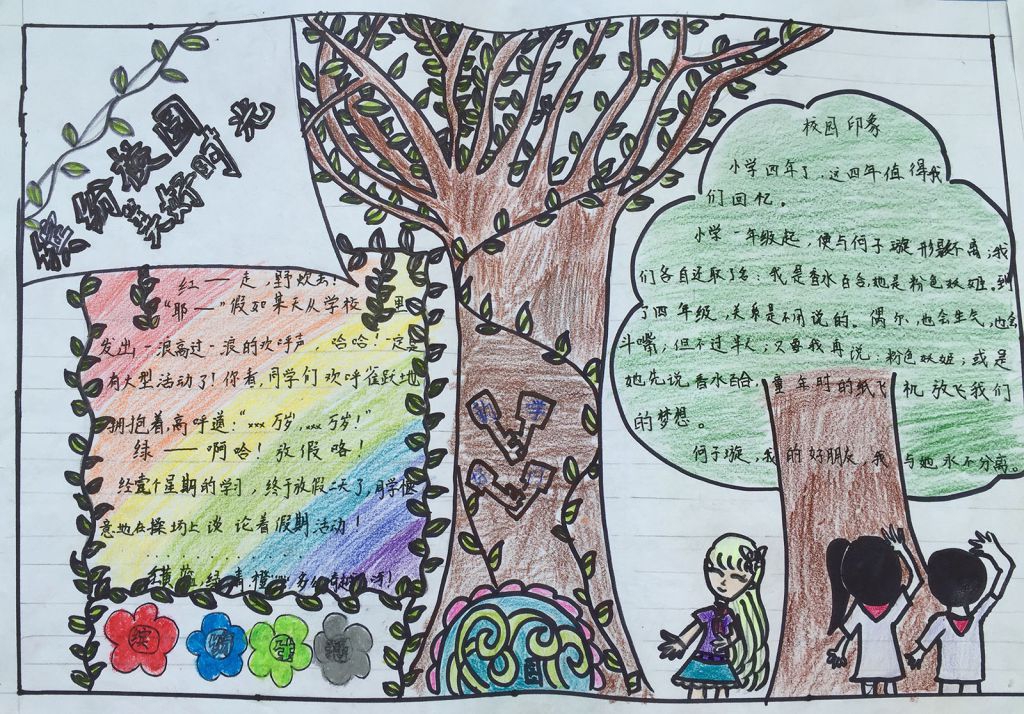 缤纷校园
美好时光
红——走,野炊去!
“耶——”假如某天从学校里
发出一浪高过一浪的欢呼声,哈哈!一定是
有大型活动了!你看,同学们欢呼雀跃地
拥抱着,高呼道:“…万岁,…万岁!”
绿——啊哈!放假咯!
经壹个星期的学习,终于放假二天了,同学惬
意地在操场上谈论着假期活动!
缤纷生活
校园印象
小学四年了,这四年值得我
们回忆。
小学一年级起,便与何子璇形影不离;我
们各自还取了名:我是香水百合,她是粉色妖姬。到
了四年级,关系是不用说的。偶尔,也会生气,也会
斗嘴,但不过半人;又要我再说:粉色妖姬;或是
她先说香水百合。童年时的纸飞机放飞我们
的梦想。
何子璇,我的好朋友,我与她永不分离。